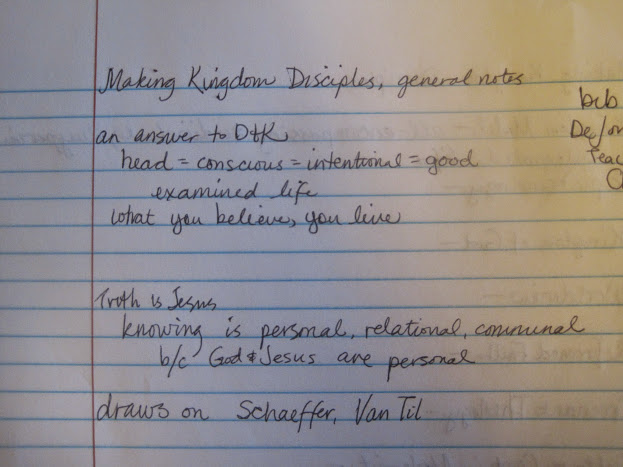 Making Kingdom Disciples, general notes
an answer to D+K
head = conscious = intentional = good
examined life
What you believe, you live
Truth is Jesus
knowing is personal, relational, communal
b/c God & Jesus are personal
draws on Schaeffer, Van Til
bcb
De/or
Teac